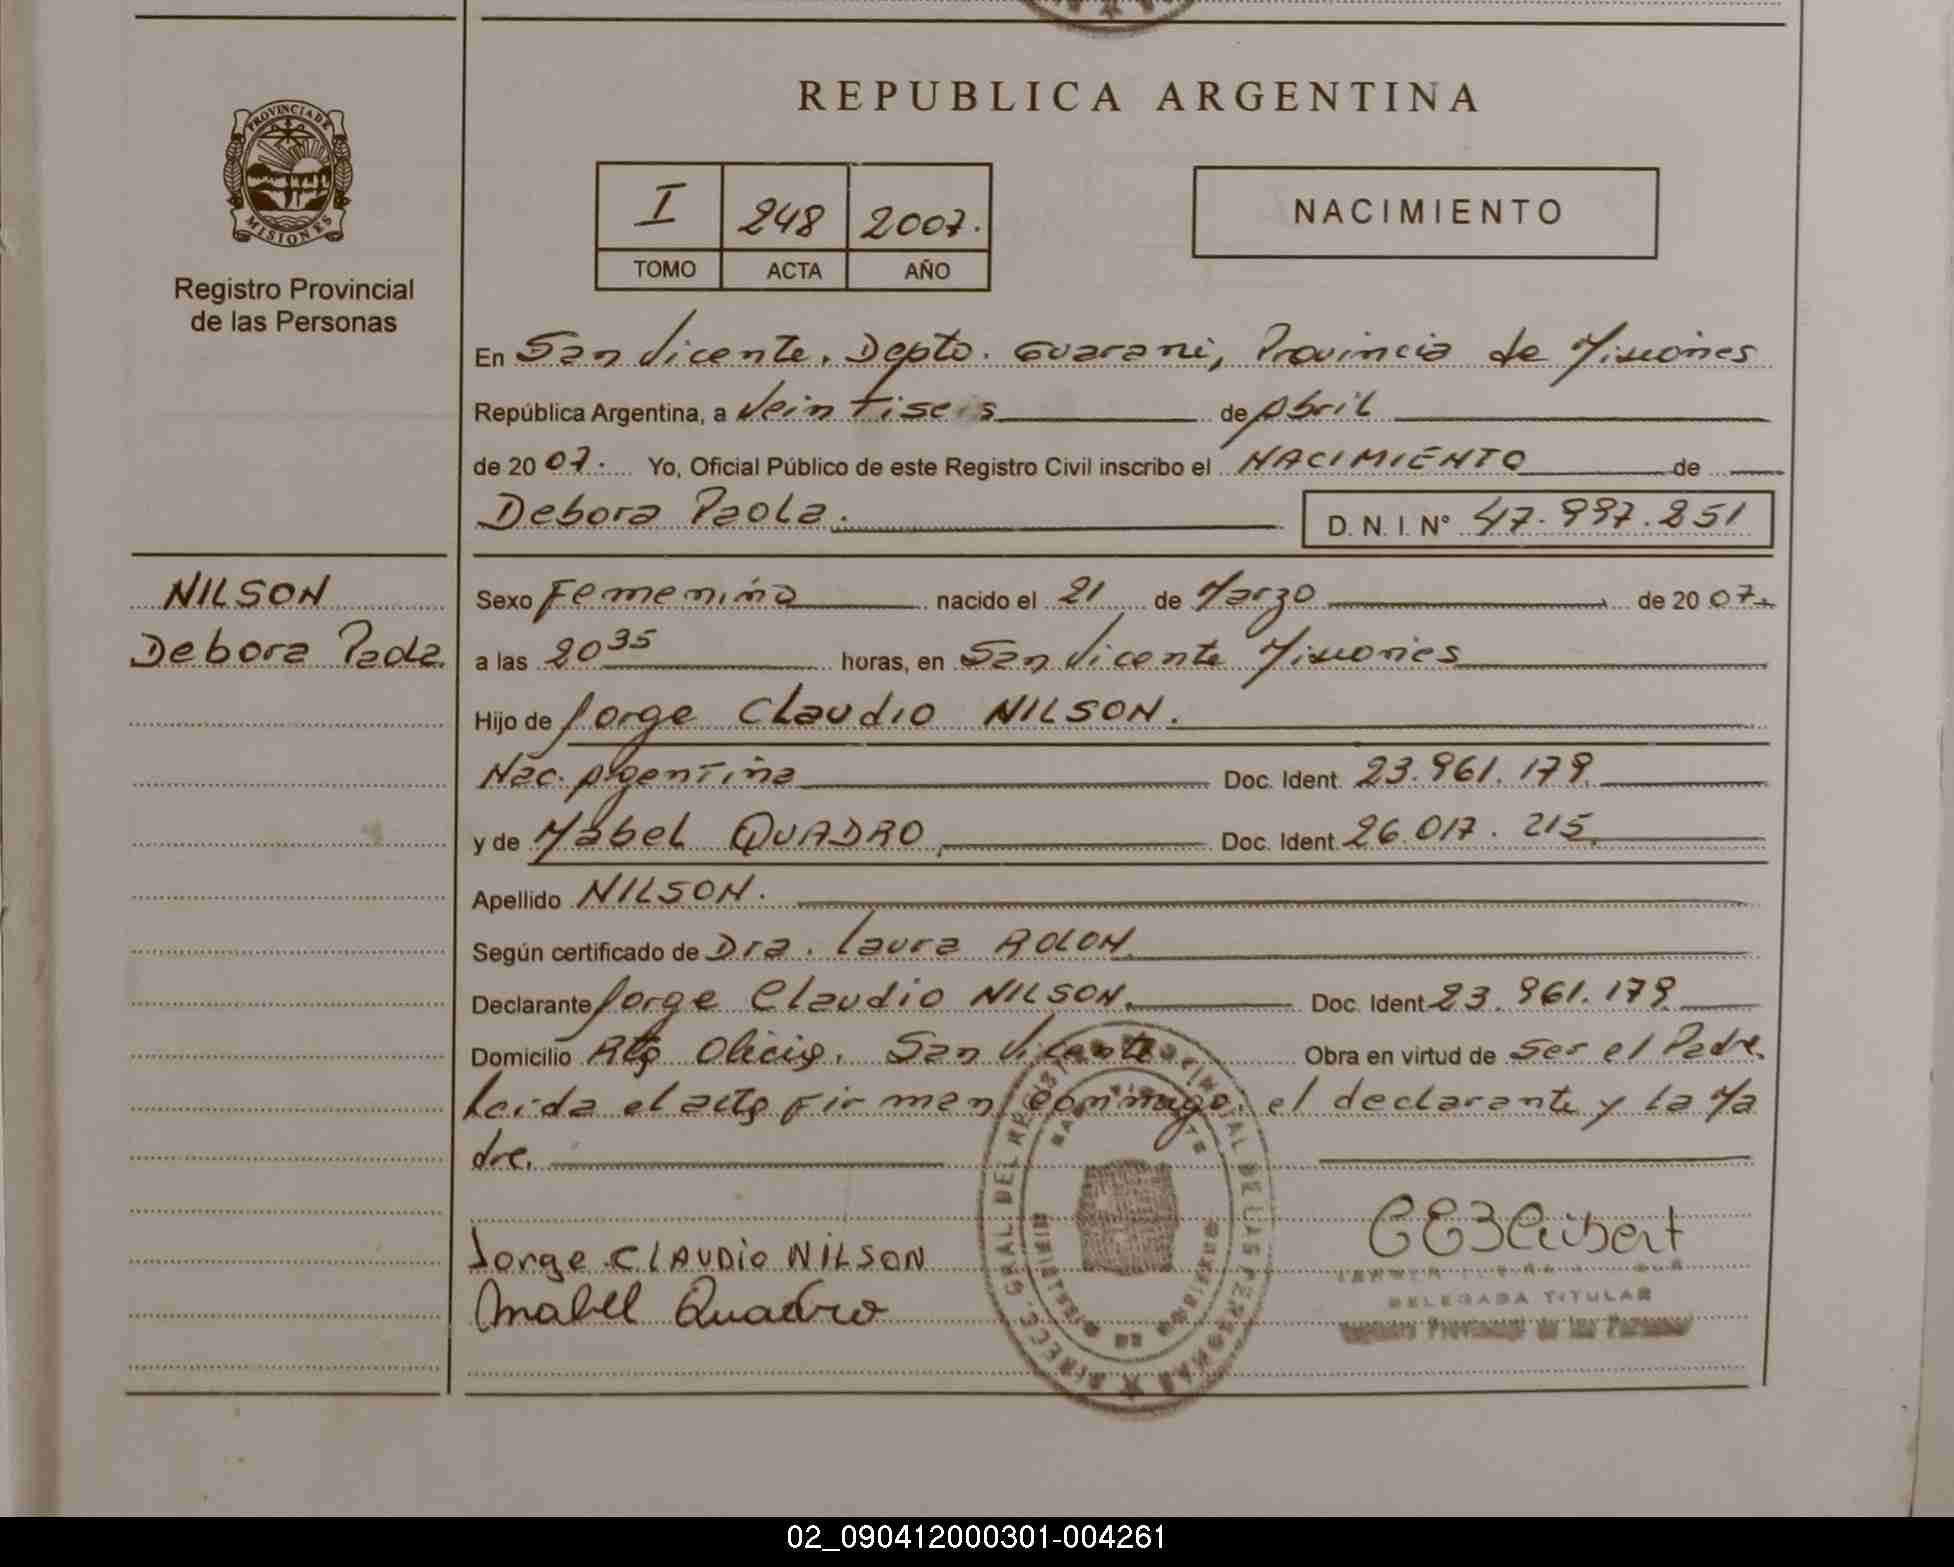 REPUBLICA ARGENTINA
PROVINCIA DE
MISIONES
Registro Provincial
de las Personas
I 248 2007.
TOMO ACTA AÑO
NACIMIENTO
En San Vicente, Depto. Guarani, Provincia de Misiones
República Argentina, a Veintiseis de Abril
de 2007. Yo, Oficial Público de este Registro Civil inscribo el NACIMIENTO de
Debora Paola. D. N. I. N° 47.997.251
NILSON
Debora Paola
Sexo Femenina nacido el 21 de Marzo de 2007.
a las 20 35 horas, en San Vicente Misiones
Hijo de Jorge Claudio NILSON.
Nac. Argentina Doc. Ident. 23.961.179.
y de Mabel QUADRO, Doc. Ident. 26.017.215.
Apellido NILSON.
Según certificado de Dra. Laura ROLON.
Declarante Jorge Claudio NILSON. Doc. Ident. 23.961.179
Domicilio San Vicente Obra en virtud de Ser el Padre.
Leida el acta firman conmigo: el declarante y la Ma
dre.
Jorge CLAUDIO NILSON
Mabel Quadro
DELEGADA TITULAR
Registro Provincial de las Personas
02_090412000301-004261